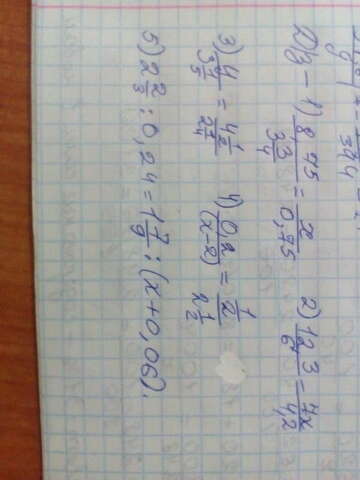 Д/з – 1) 8,75 / 3 3/4 = x / 0,75 2) 12,3 / 6 = 7x / 4,2
3) y / 3 1/5 = 4 1/2 / 2 1/4 4) 0,2 / (x-2) = 1/2 / 2 1/2
5) 2 2/3 : 0,24 = 1 7/9 : (x+0,06).